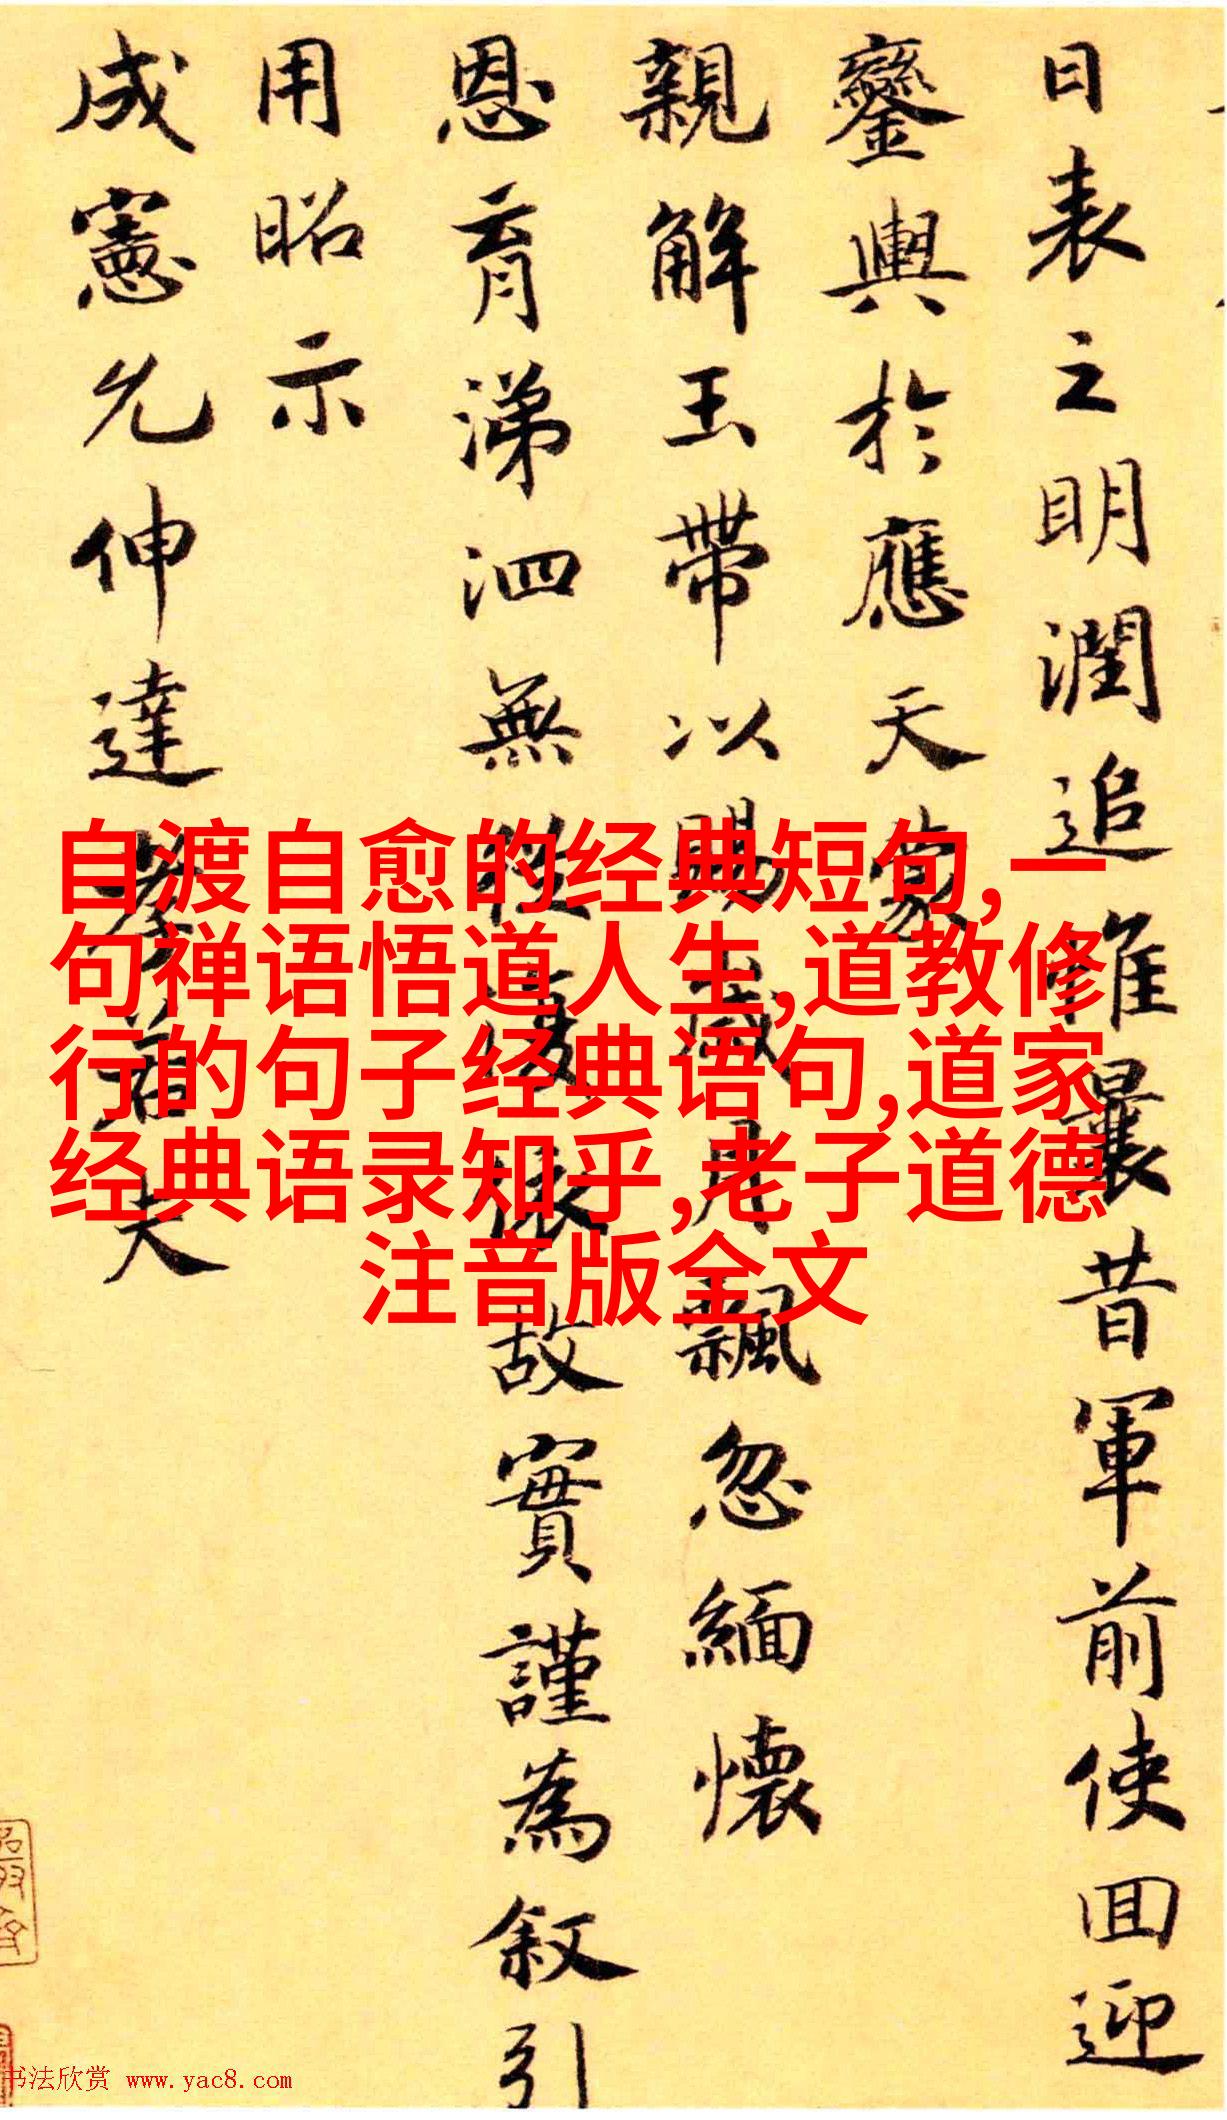 日表之明潤追惟曩昔軍前使回迎
鑾輿於應天蒙
親解玉帶以賜歲月飄忽緬懷
恩育涕泗無故實謹為叙引
用昭示
成憲允伸達若夫
自渡自愈的经典短句,一
句禅语悟道人生,道教修
行的句子经典语句,道家
经典语录知乎,老子道德
注音版全文
书法欣赏 www.yac8.com